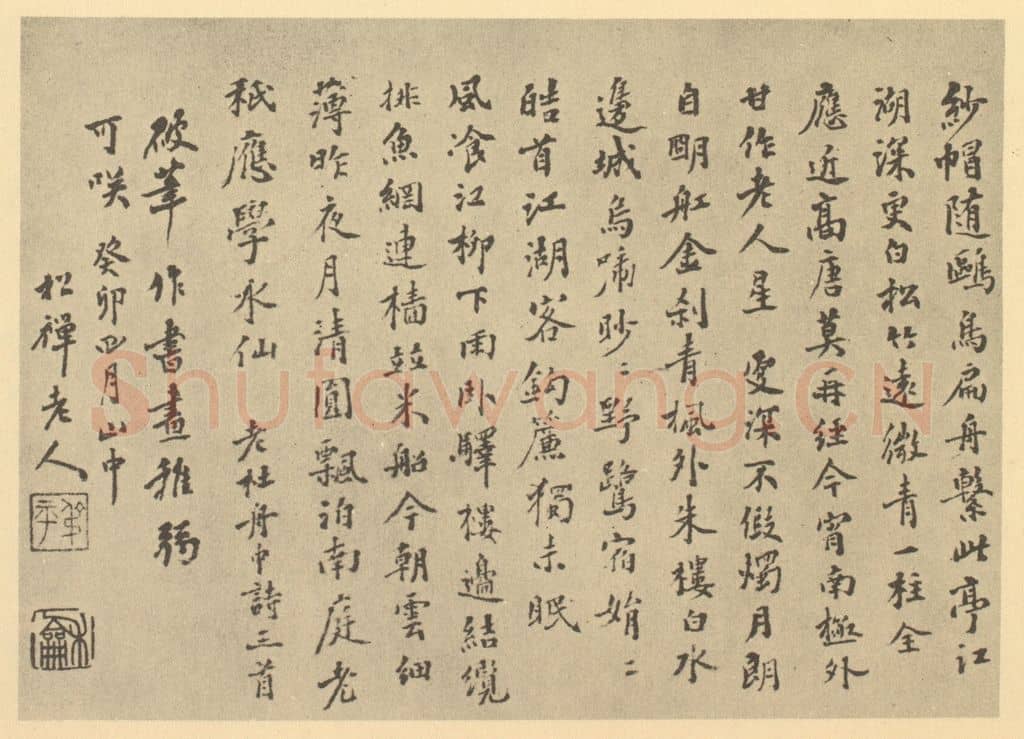 紗帽随鷗鳥扁舟繫此亭江
湖深更白松竹遠微青一柱全
應近高唐莫再經今宵南極外
甘作老人星 更深不假燭月朗
自朙舡金刹青楓外朱樓白水
邊城烏啼眇〻野鷺宿娟〻
皓首江湖客鈎簾獨未眠
風飡江柳下雨卧驛樓邊結纜
排魚網連檣竝米船今朝雲細
薄昨夜月清圓飄泊南庭老
秖應學水仙 老杜舟中詩三首
破筆作書畫稚弱
可咲 癸卯四月山中
松禪老人
Shufawang.CN